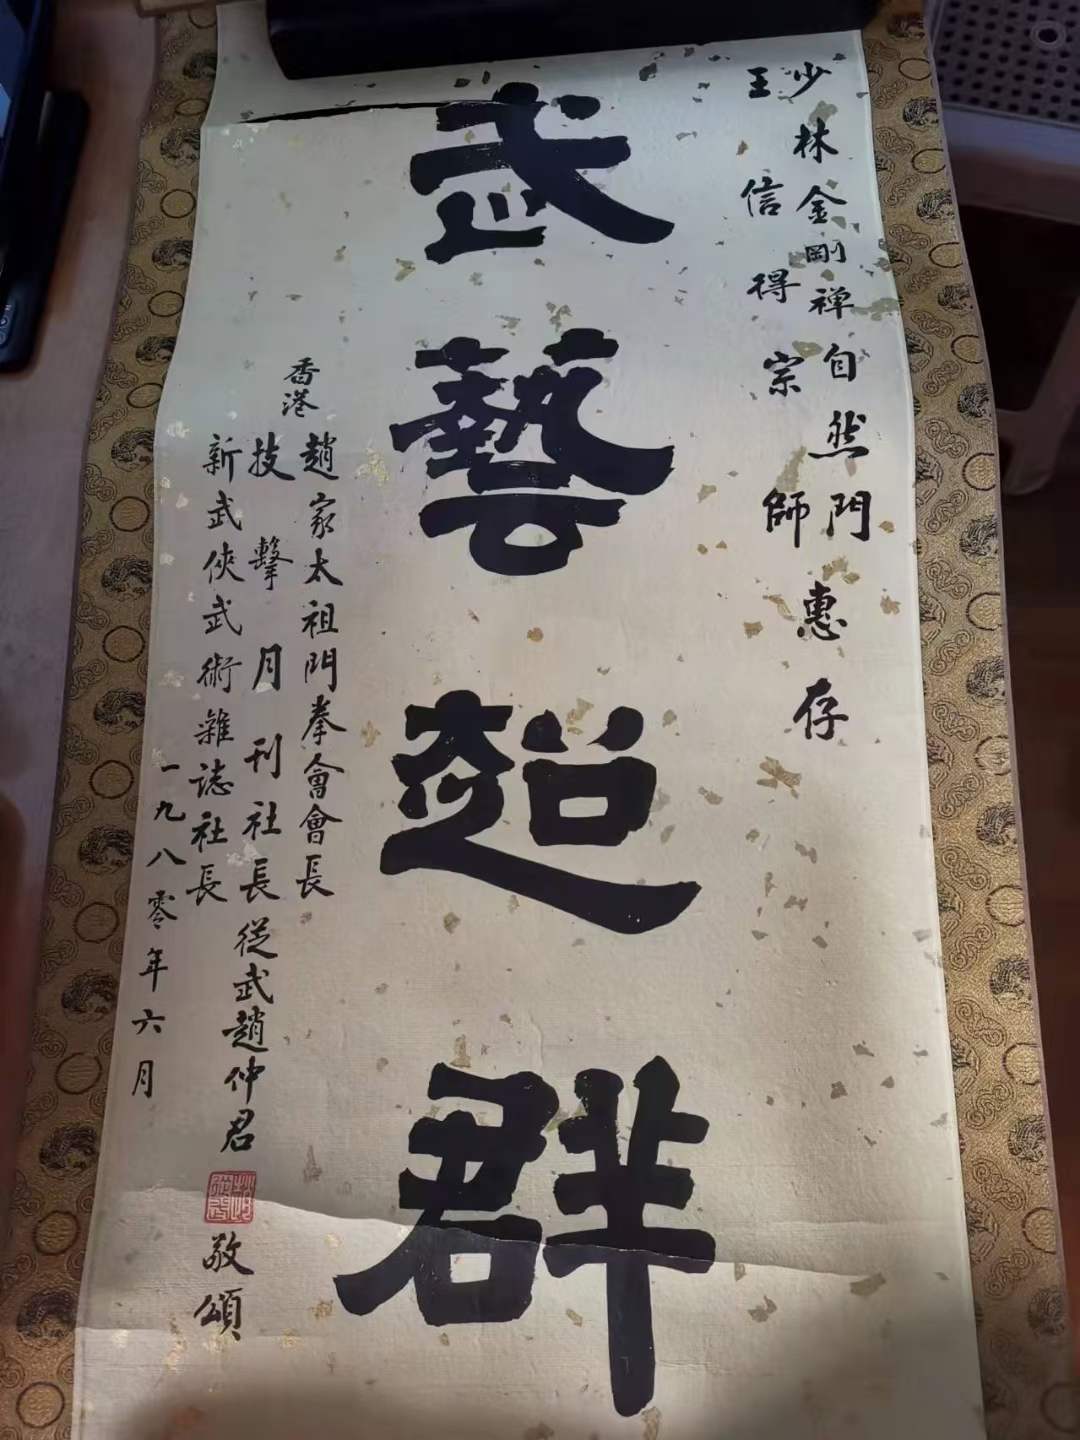 少林金剛禅自然門
王信得宗師惠存
武藝超群
香港
趙家太祖門拳會會長
技擊月刊社長
新武俠武術雜誌社長
從武趙仲君
敬頌
一九八零年六月